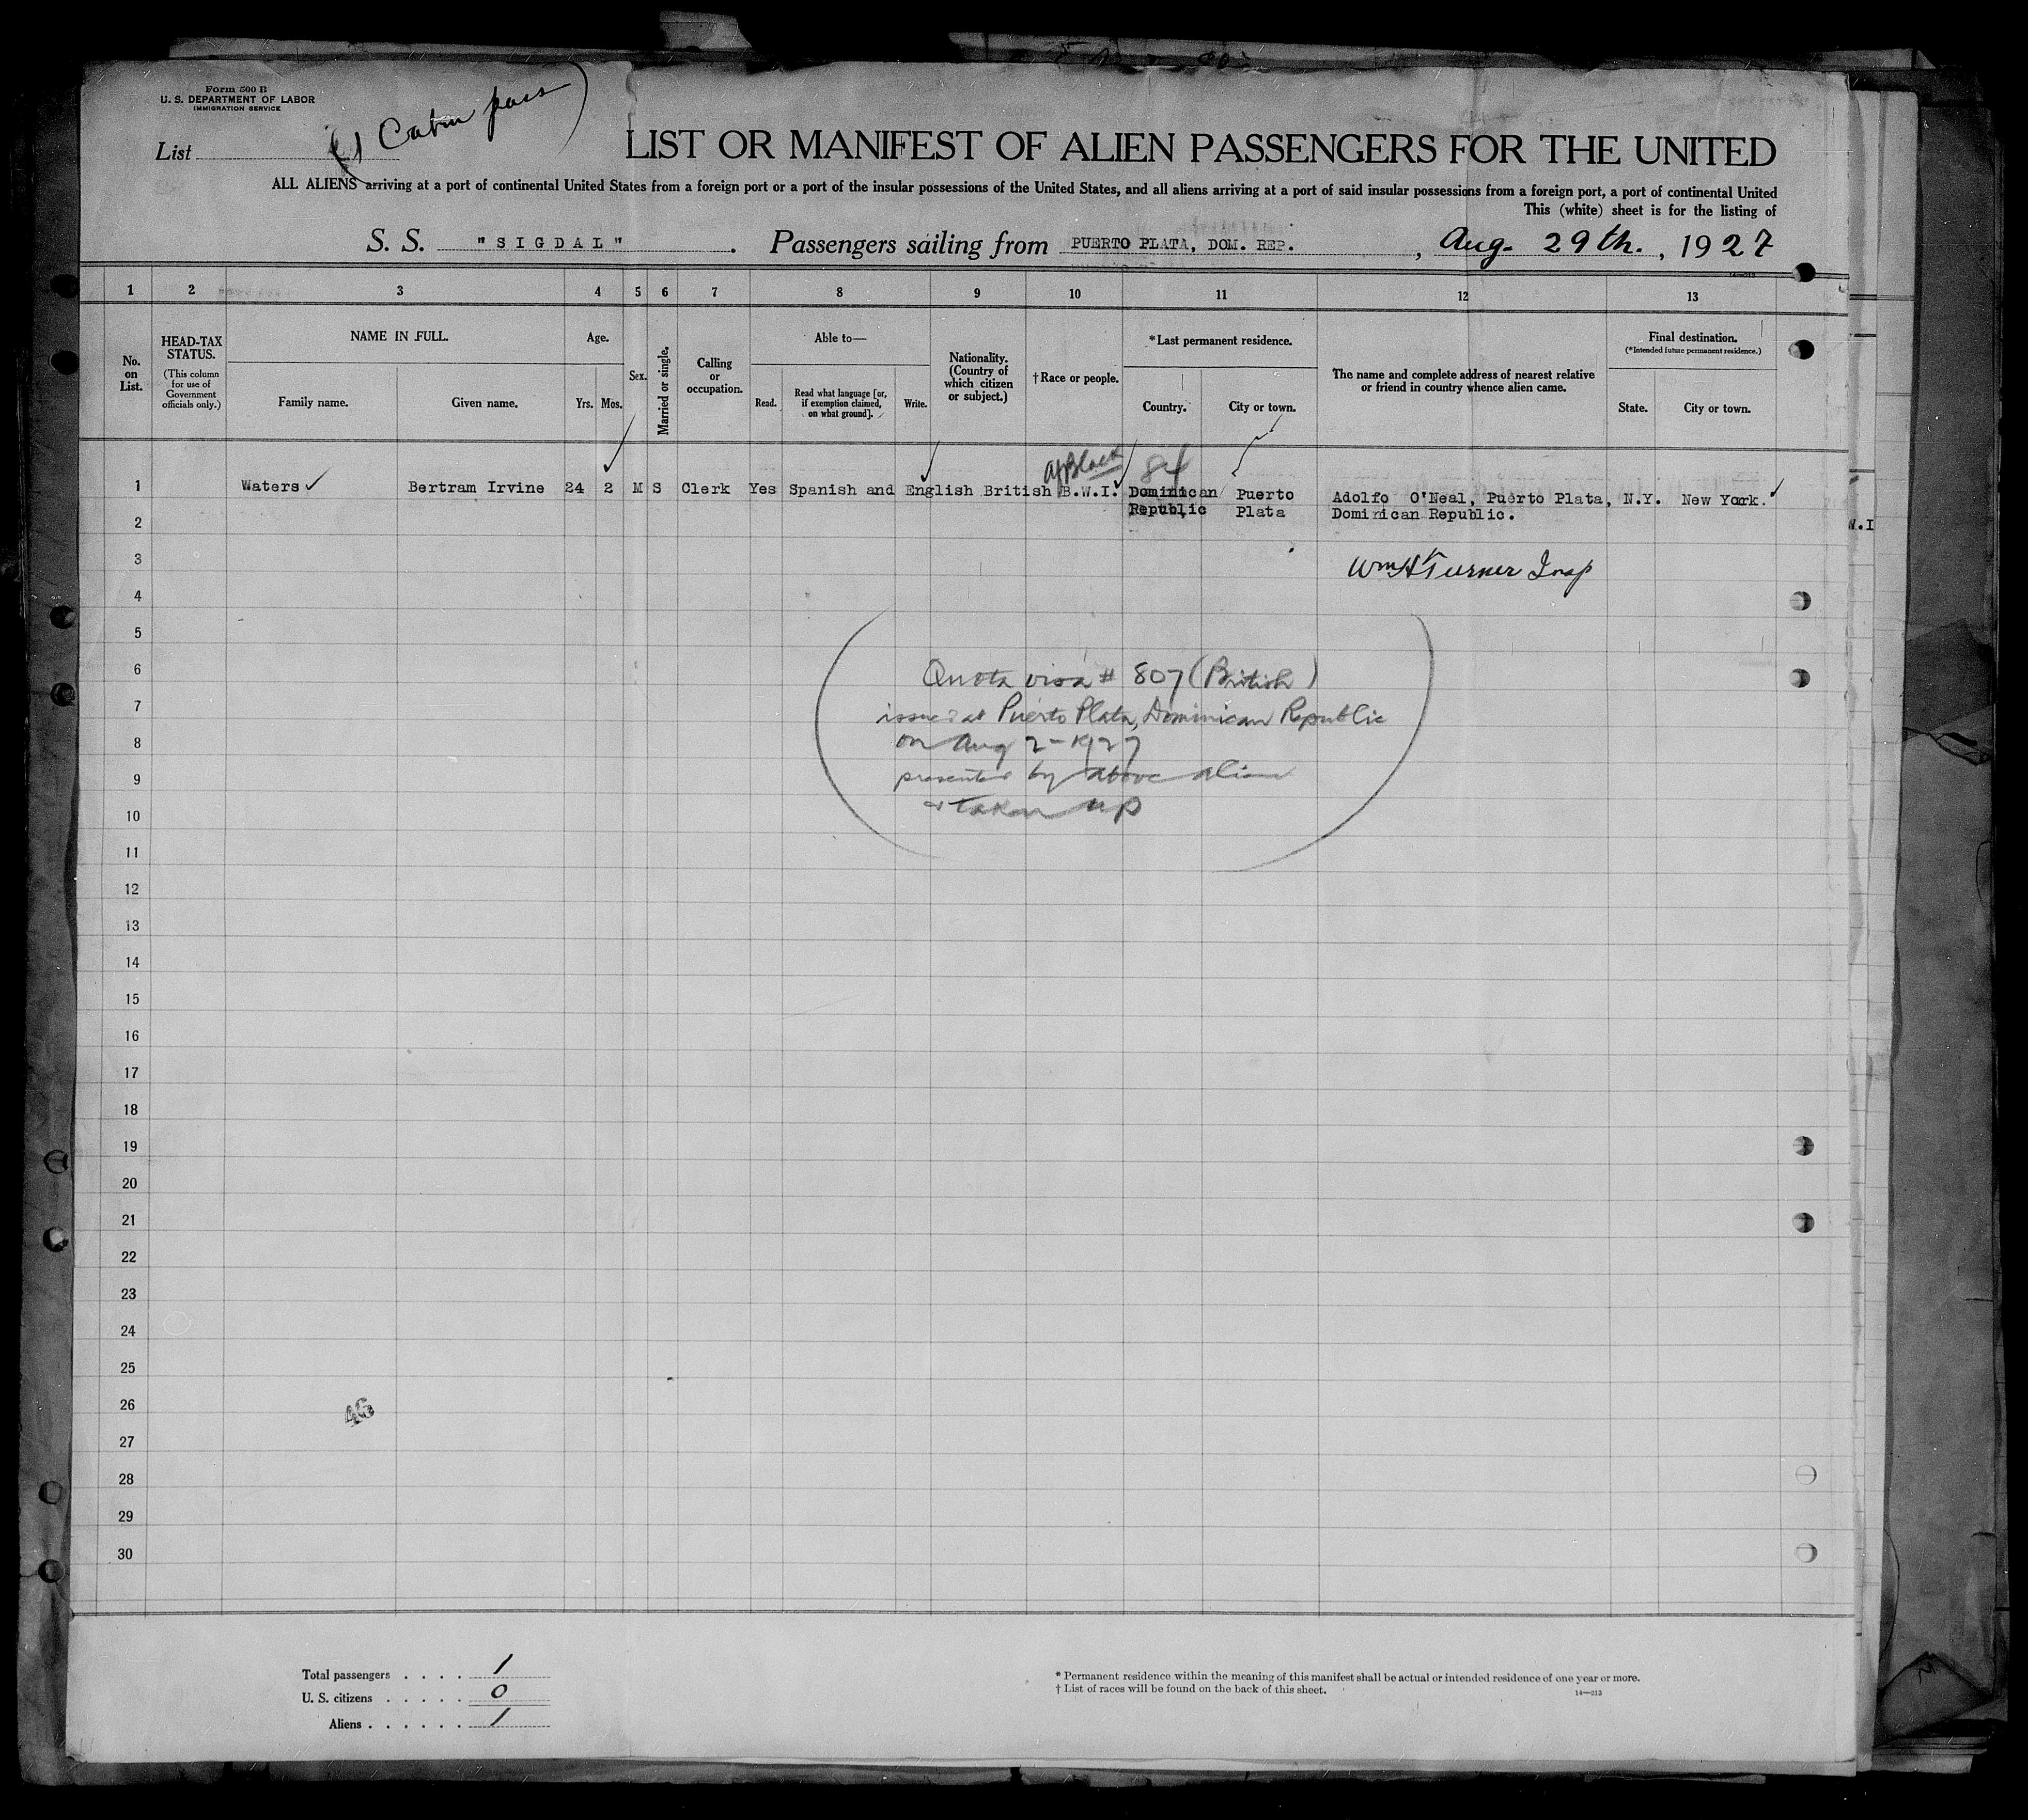 Form 500 B
U. S. DEPARTMENT OF LABOR
IMMIGRATION SERVICE
List
(1 Cabin pass)
LIST OR MANIFEST OF ALIEN PASSENGERS FOR THE UNITED
ALL ALIENS arriving at a port of continental United States from a foreign port or a port of the insular possessions of the United States, and all aliens arriving at a port of said insular possessions from a foreign port, a port of continental United
This (white) sheet is for the listing of
S. S. "SIGDAL". Passengers sailing from PUERTO PLATA, DOM. REP., Aug. 29th., 1927
1 2 3 4 5 6 7 8 9 10 11 12 13
No. on List.
HEAD-TAX STATUS.
(This column for use of Government officials only.)
NAME IN FULL.
Family name. Given name.
Age.
Yrs. Mos.
Sex.
Married or single.
Calling or occupation.
Able to—
Read. Read what language [or, if exemption claimed, on what ground]. Write.
Nationality. (Country of which citizen or subject.)
†Race or people.
*Last permanent residence.
Country. City or town.
The name and complete address of nearest relative or friend in country whence alien came.
Final destination.
(*Intended future permanent residence.)
State. City or town.
Af Black 84
1 Waters ✓ Bertram Irvine 24 2 M S Clerk Yes Spanish and English British B.W.I. Dominican Republic Puerto Plata Adolfo O'Neal, Puerto Plata, Dominican Republic. N.Y. New York.
W.I
2
3
Wm H Turner Insp
4
5
6
Quota visa # 807 (British)
7
issued at Puerto Plata, Dominican Republic
8
on Aug 2-1927
9
presented by above alien
10
& taken up
11
12
13
14
15
16
17
18
19
20
21
22
23
24
25
26
46
27
28
29
30
Total passengers . . . . 1
U. S. citizens . . . . . 0
Aliens . . . . . . 1
* Permanent residence within the meaning of this manifest shall be actual or intended residence of one year or more.
† List of races will be found on the back of this sheet.
14—213